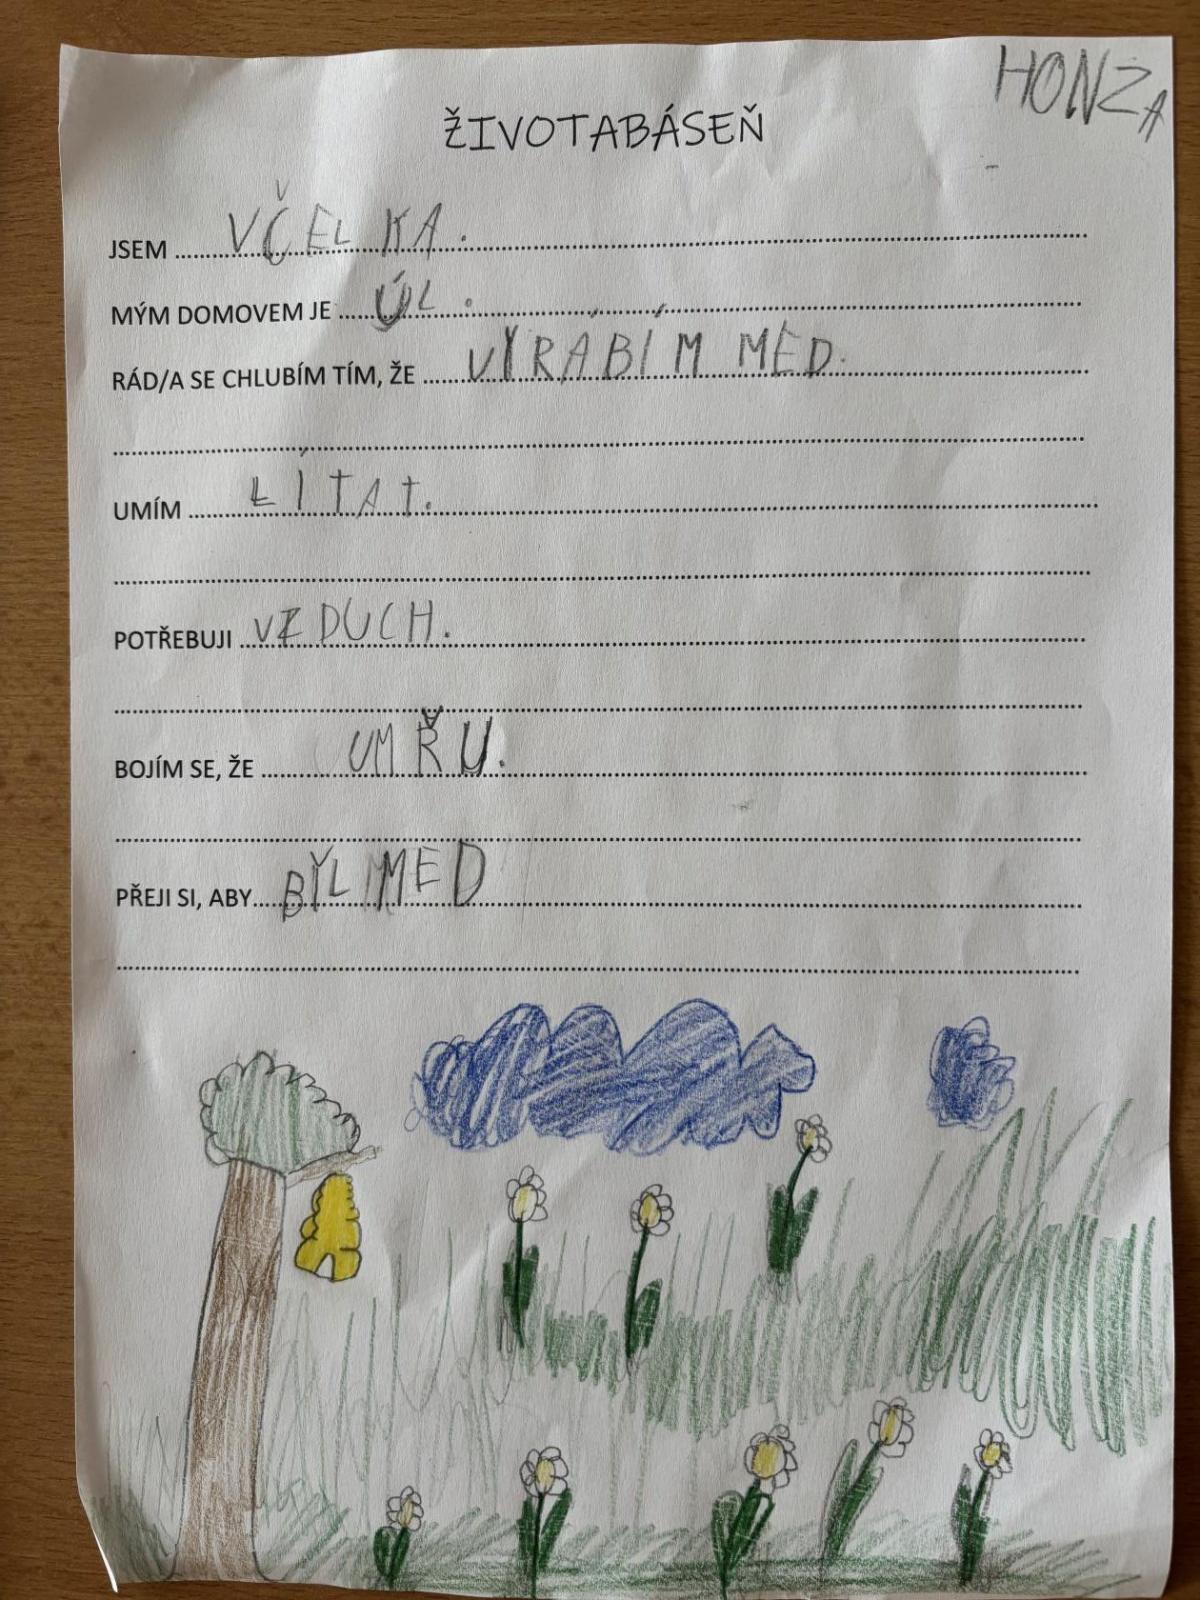 HONZA
ŽIVOTABÁSEŇ
JSEM VČELKA.
MÝM DOMOVEM JE ÚL.
RÁD/A SE CHLUBÍM TÍM, ŽE VYRÁBÍM MED.
UMÍM LÍTAT.
POTŘEBUJI VZDUCH.
BOJÍM SE, ŽE UMŘU.
PŘEJI SI, ABY BYL MED